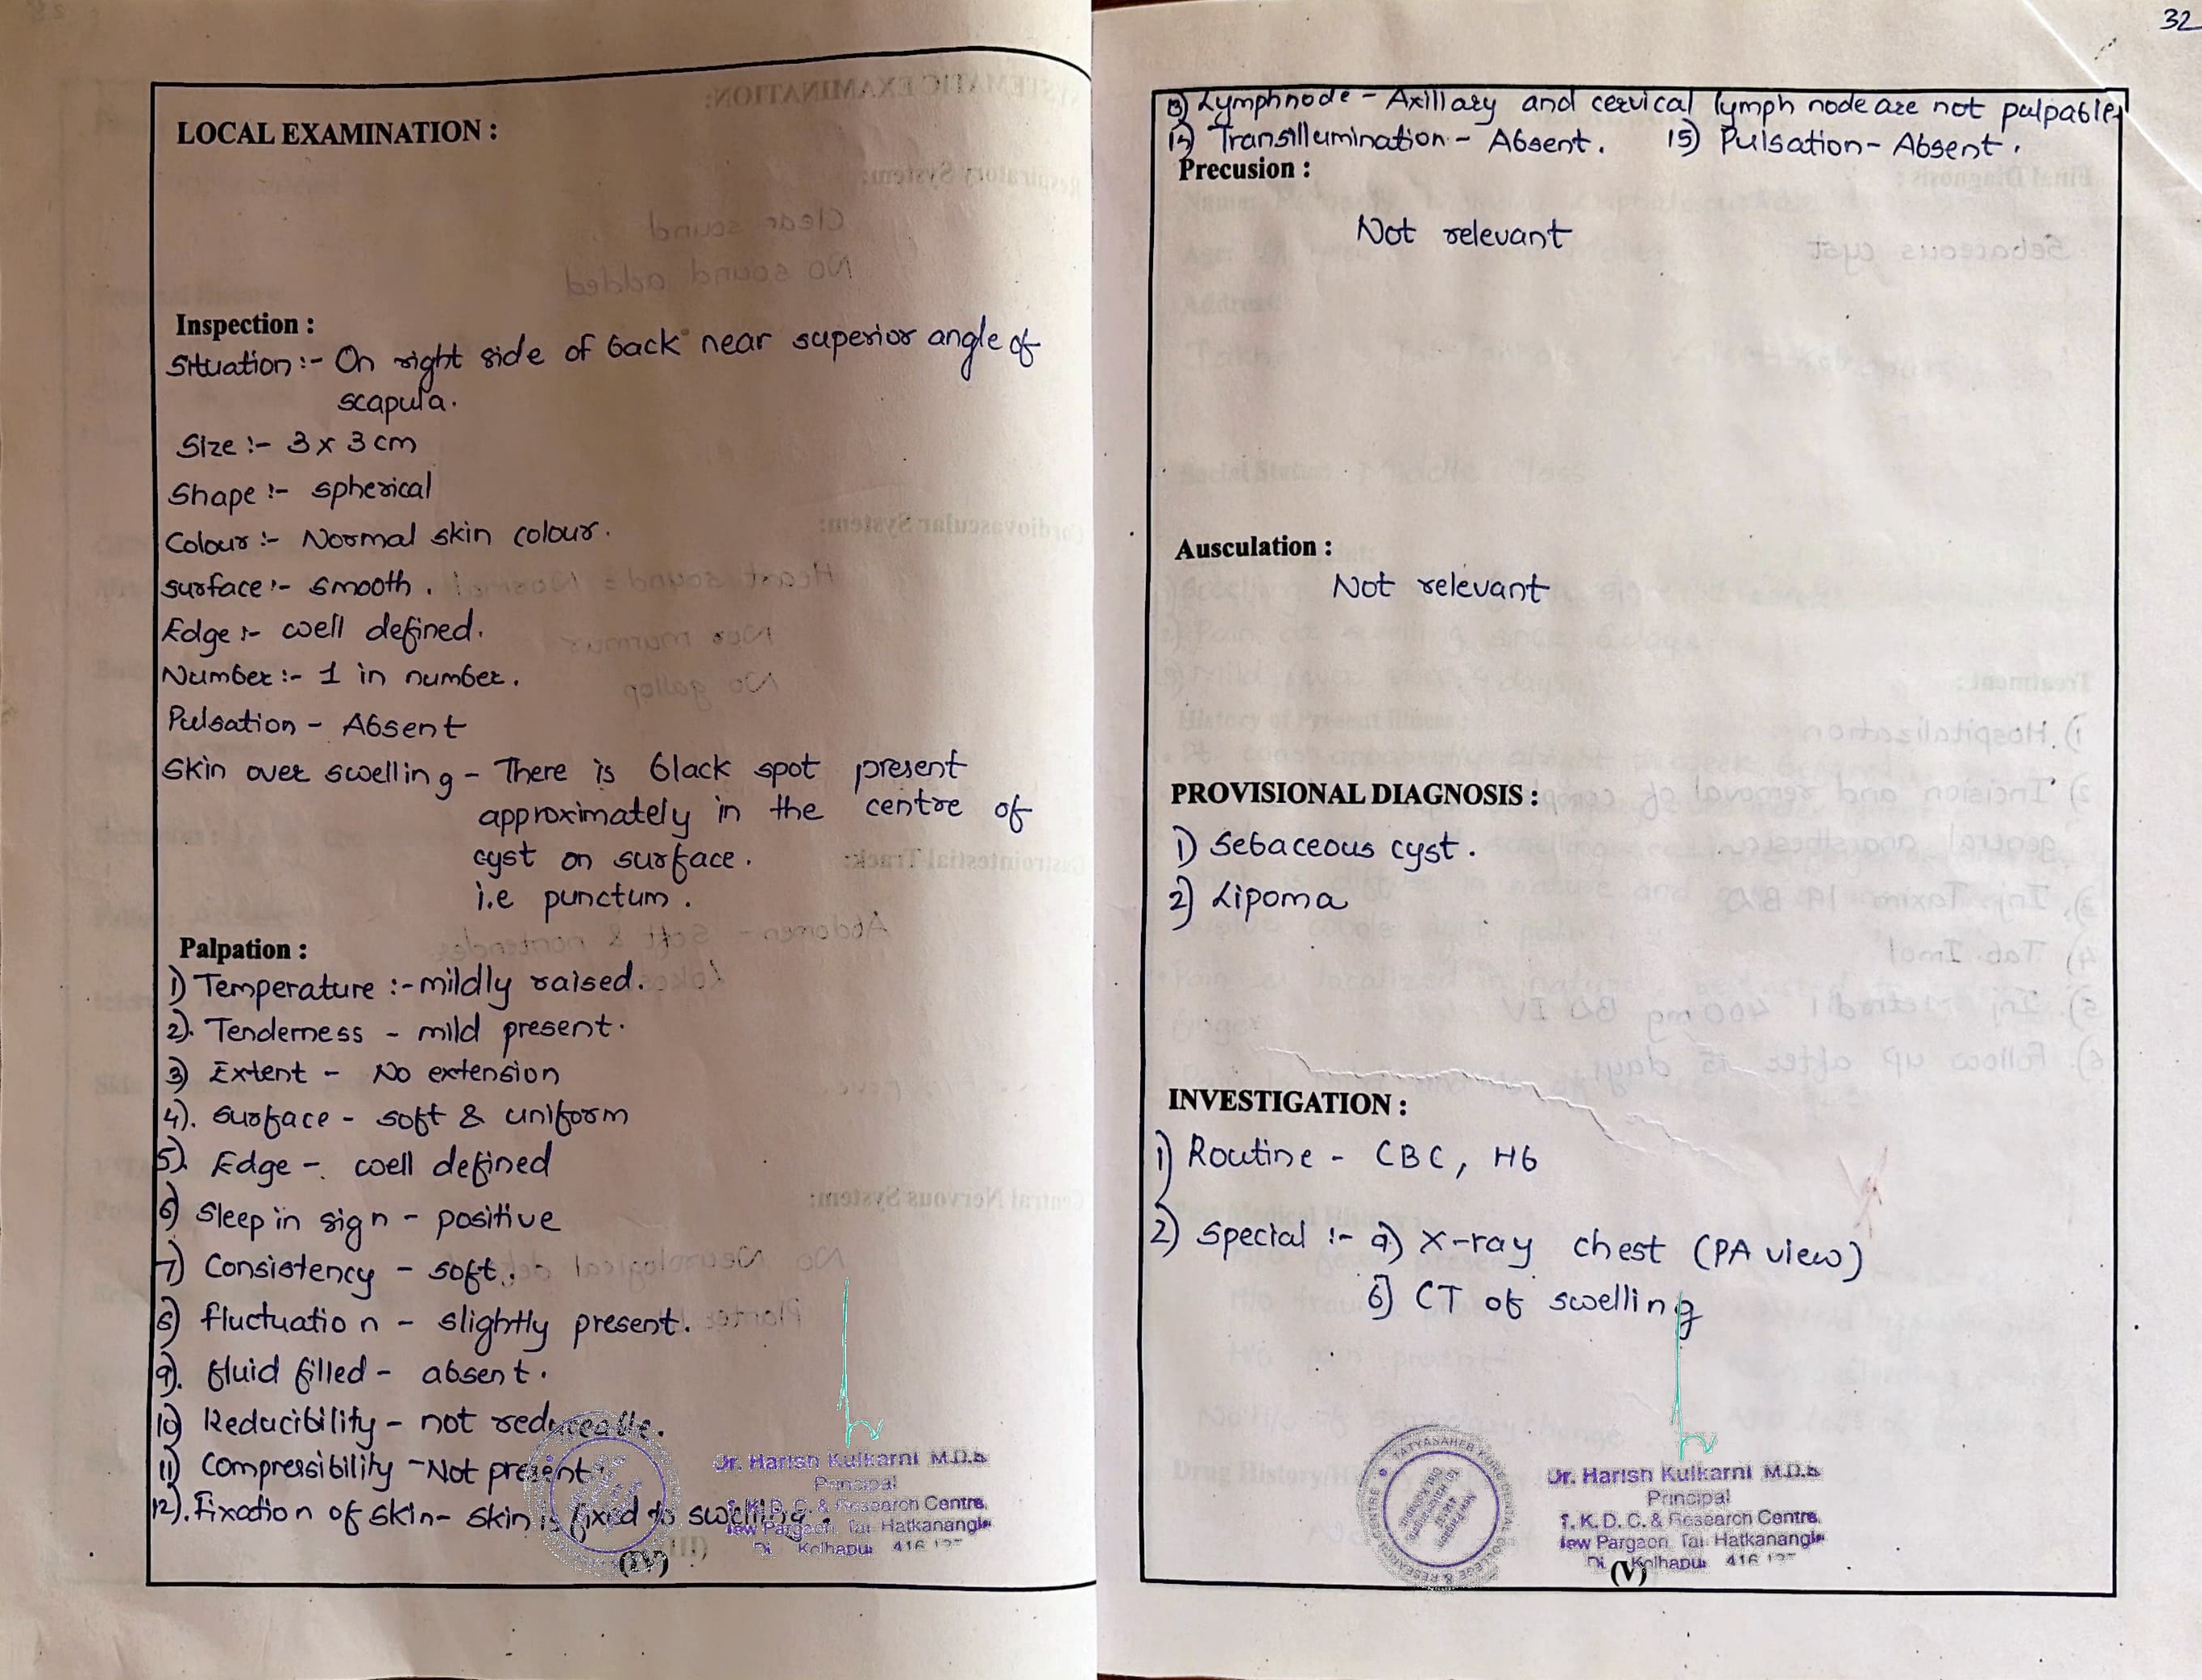 LOCAL EXAMINATION :
Inspection :
Situation :- On right side of back near superior angle of
scapula.
Size :- 3 x 3 cm
Shape :- spherical
Colour :- Normal skin colour.
surface :- smooth .
Edge :- well defined.
Number :- 1 in number.
Pulsation - Absent
Skin over swelling - There is black spot present
approximately in the centre of
cyst on surface.
i.e punctum.
Palpation :
1) Temperature :- mildly raised.
2). Tenderness - mild present.
3) Extent - No extension
4). surface - soft & uniform
5). Edge - well defined
6) Sleep in sign - positive
7) Consistency - soft.
8) fluctuation - slightly present.
9). fluid filled - absent.
10) Reducibility - not reduceable.
11) Compressibility - Not present.
12). Fixation of skin - skin is fixed to swelling.
Dr. Harish Kulkarni M.D.S
Principal
T. K. D. C. & Research Centre,
New Pargaon, Tal. Hatkanangle
Di Kolhapur 416
(IV)
32
13) Lymphnode - Axillary and cervical lymph node are not pulpable.
14) Transillumination - Absent. 15) Pulsation - Absent.
Precusion :
Not relevant
Ausculation :
Not relevant
PROVISIONAL DIAGNOSIS :
1) Sebaceous cyst.
2) Lipoma
INVESTIGATION :
1) Routine - CBC, Hb
2) Special :- a) X-ray chest (PA view)
b) CT of swelling
Dr. Harish Kulkarni M.D.S
Principal
T. K. D. C. & Research Centre,
New Pargaon, Tal. Hatkanangle
Di Kolhapur 416
(V)